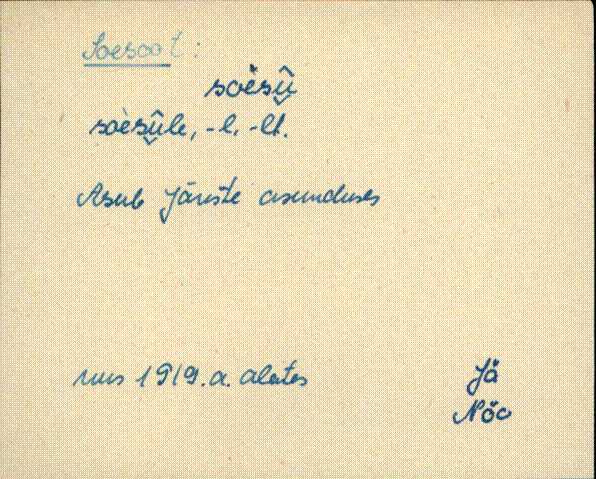 Soesoo t :
soèsū̬̂
soèsû̬le, -l, -lt.
Asub Järiste asunduses
uus 1919. a. alates
Jä
Nõo